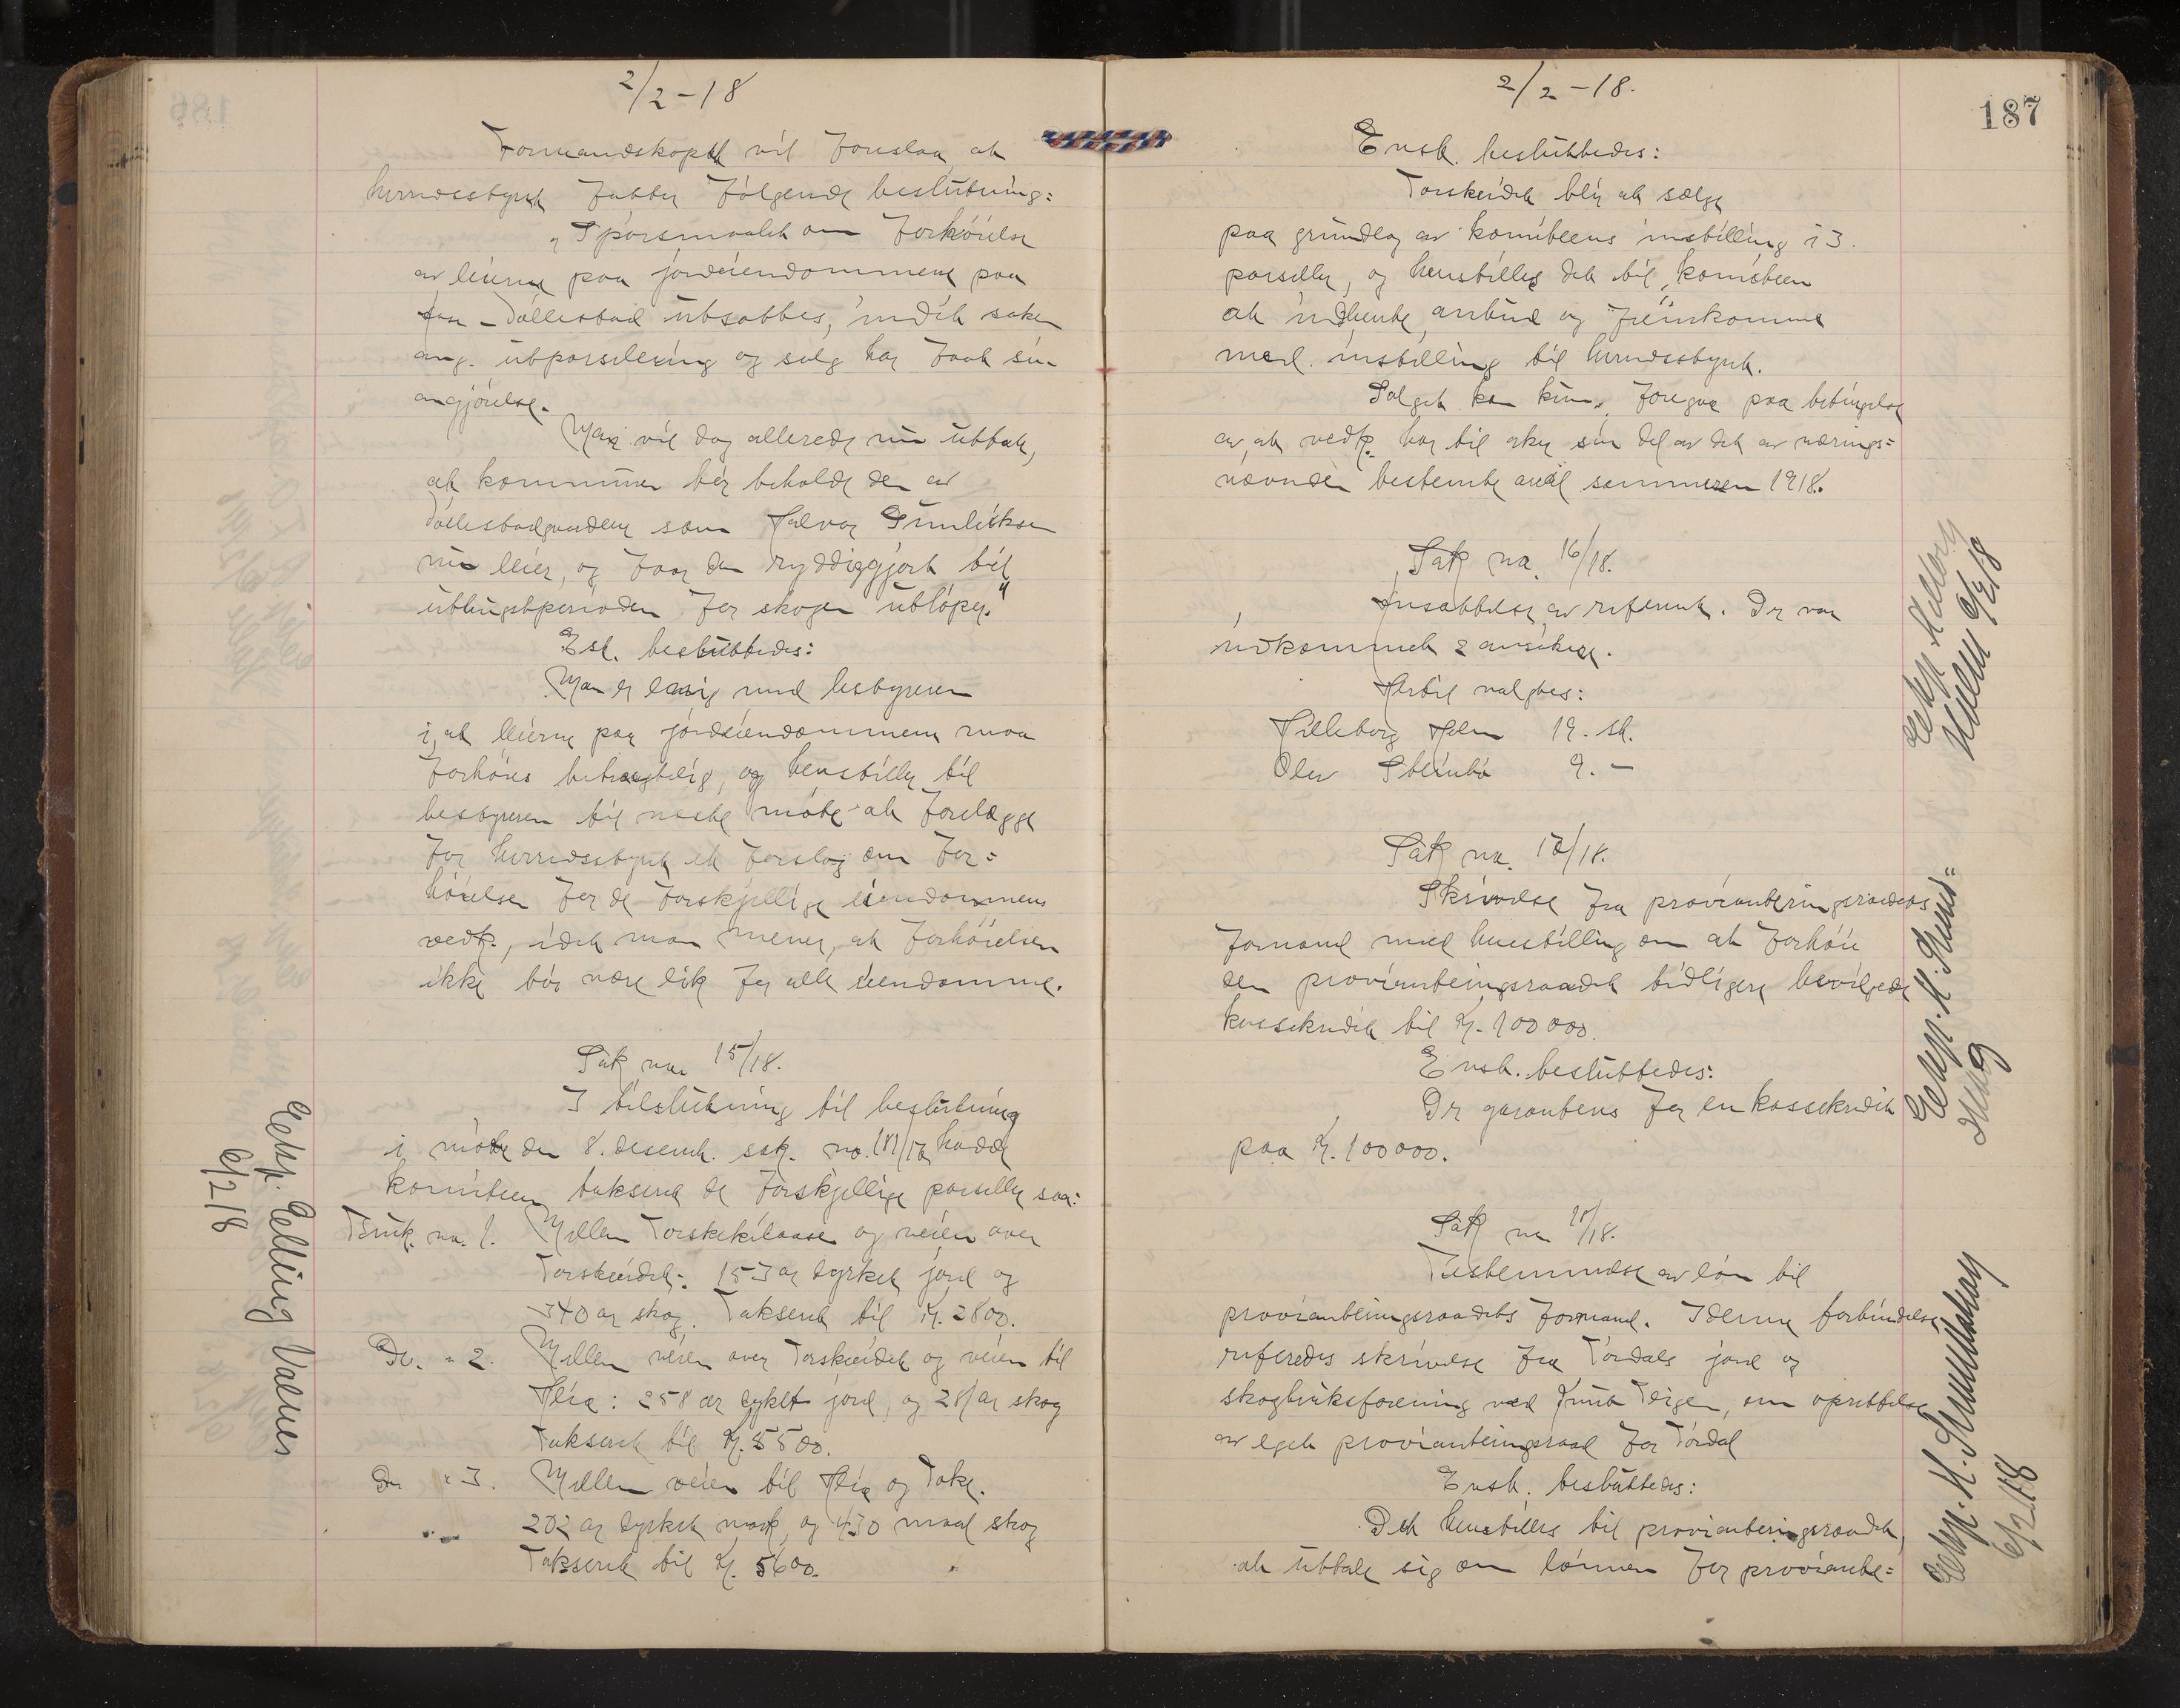 2/2-18
Formandskapet vil foreslaa at
herredsstyret fatter følgende beslutning:
"Spørsmaalet om forhøielse
av leierne paa jordeiendommene paa
Dollestad utsættes, indtil saken
ang. utparselering og salg har faat sin
avgjørelse.
Man vil dog allerede nu uttale,
at kommunen bør beholde den av
som Halvor Gunleiksen
nu leier, og faar den ryddiggjort til
utløper."
Enst. besluttedes:
Man er enig med bestyreren
i, at leierne paa jordeiendommene maa
forhøies betragtelig, og henstiller til
bestyreren til næste møte at forelægge
for herredsstyret et forslag om for=
høielsen for de forskjellige eiendommers
vedk., idet man mener, at forhøielsen
ikke bør være lik for alle eiendomme.
Sak no 15/18.
I tilslutning til beslutning
i møte den 8. desemb. sak. no. hadde
komiteen taksert de forskjellige parseller saa:
Bruk. no. 1. Mellem Torskekilaasen og veien over
Torskeidet: 153 ar dyrket jord og
340 ar skog. Taksert til Kr. 2800.
Do. " 2. Mellem veien over Torskeidet og veien til
: 258 ar dyrket jord, og 281 ar skog
Taksert til Kr. 5500.
Do " 3. Mellem veien til og Toke.
202 ar dyrket mark, og 430 maal skog
Taksert til Kr. 5600.
Eksp. Elling Valnes
6/2 18
187
2/2-18.
Enst. besluttedes:
Torskeidet blir at sælge
paa grundlag av komiteens instilling i 3
parseller, og henstilles det til komiteen
at indhente anbud og fremkomme
med instilling til herredsstyret.
Salget kan kun foregaa paa betingelse
av, at vedk. har til aker sin del av det av nærings=
nævnden bestemte areal sommeren 1918.
Sak no. 16/18.
Ansættelse av referent. Der var
indkommet 2 ansøkere.
Hertil valgtes:
Hilleborg Holm 19. st.
Olav Steinbø 9. -
Sak no. 17/18.
Skrivelse fra provianteringsraadets
formand med henstilling om at forhøie
den provianteringsraadet tidligere bevilgede
kassekredit til Kr. 100 000.
Enst. besluttedes:
Der garanteres for en kassekredit
paa Kr. 100 000.
Sak no 18/18.
Fastsættelse av løn til
provianteringsraadets formand. I denne forbindelse
refereredes skrivelse fra Tørdals jord og
skogbruksforening ved Knut Teigen, om oprettelse
av eget provianteringsraad for Tørdal
Enst. besluttedes:
Det henstilles til provianteringsraadet,
at uttale sig om lønnen for proviante=
Eksp. Hilleborg
Holm 6/2 18
Eksp. K.
Eksp. K.
6/2 18